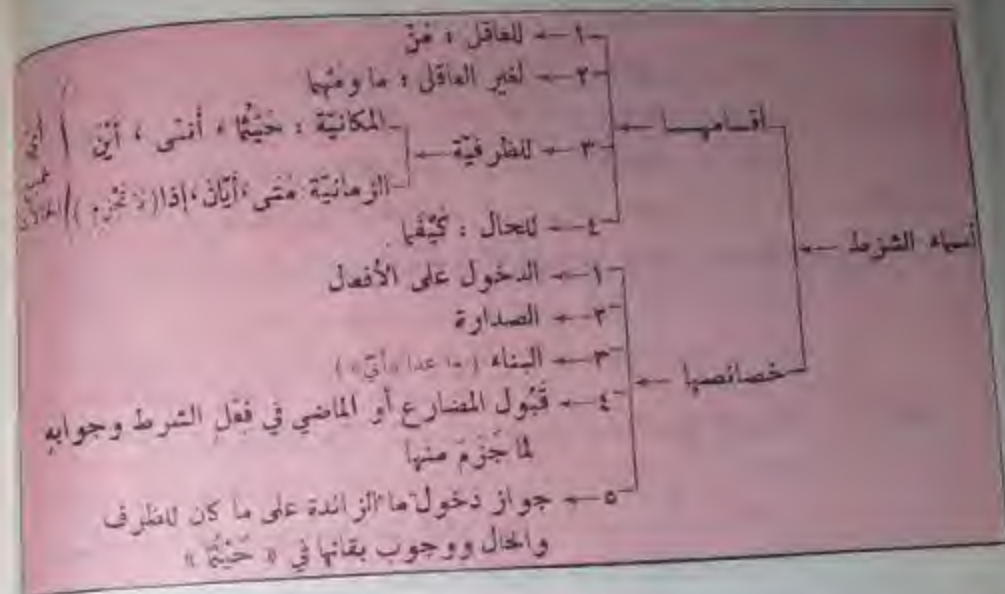 أسماء الشرط
أقسامها
١ للعاقل : مَنْ
٢ لغير العاقل : ما ومَهْما
٣ للظرفيّة
المكانيّة : حَيْثُما ، أَنّى ، أَيْنَ
الزمانيّة مَتى ، أَيّانَ ، إذا ( لا تَجْزِم )
٤ للحال : كَيْفَما
خصائصها
١ الدخول على الأفعال
٢ الصدارة
٣ البناء ( ما عدا «أيّ» )
٤ قَبُول المضارع أو الماضي في فِعْلِ الشرط وجوابِهِ
لما جَزَمَ منها
٥ جواز دخول ما الزائدة على ما كان للظرف
والحال ووجوب بقائها في « حَيْثُما »